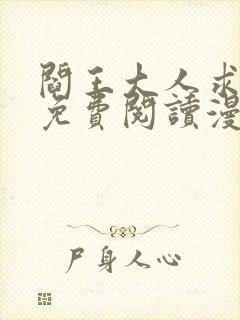 閻王大人求
免費閱讀漫
尸身人心